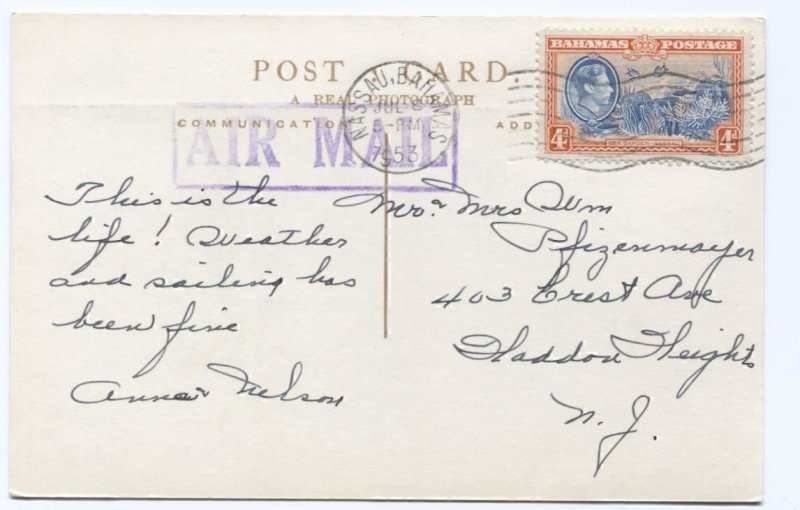 POST CARD
A REAL PHOTOGRAPH
COMMUNICATION
ADD
AIR MAIL
NASSAU, BAHAMAS
JUL
5-PM
1953
BAHAMAS POSTAGE
4d 4d
SEA GARDEN · NASSAU
This is the
life! Weather
and sailing has
been fine
Anna Nelson
Mr. & Mrs Wm
Pfizenmayer
403 Crest Ave
Haddon Heights
N. J.